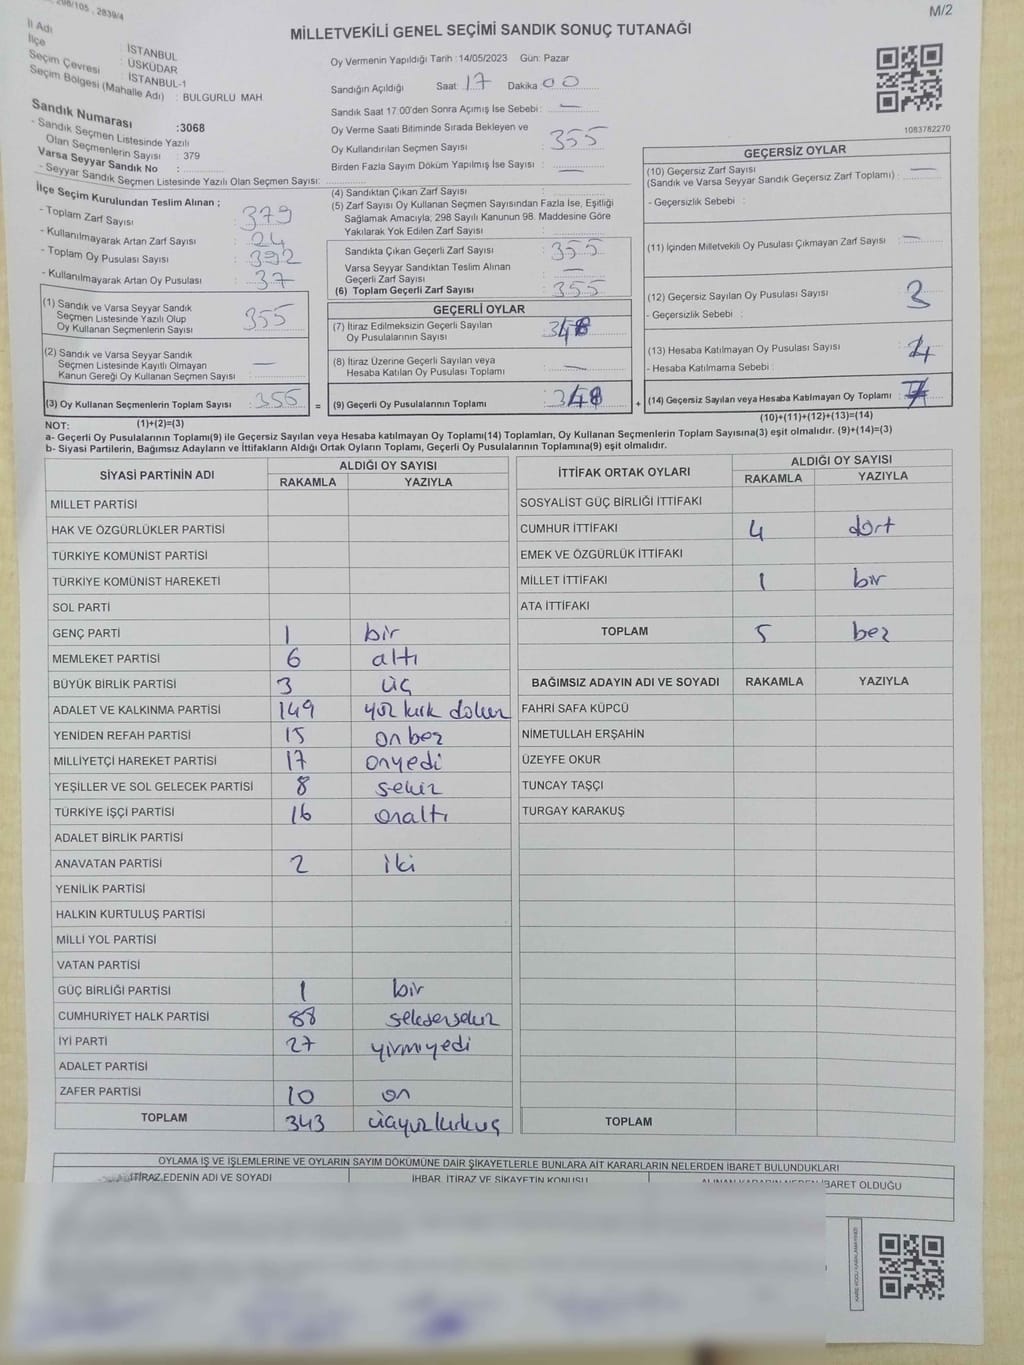 298/105, 2839/4
M/2
MİLLETVEKİLİ GENEL SEÇİMİ SANDIK SONUÇ TUTANAĞI
İl Adı : İSTANBUL
İlçe : ÜSKÜDAR
Seçim Çevresi : İSTANBUL-1
Seçim Bölgesi (Mahalle Adı) : BULGURLU MAH
Sandık Numarası :3068
- Sandık Seçmen Listesinde Yazılı
Olan Seçmenlerin Sayısı : 379
Varsa Seyyar Sandık No :
- Seyyar Sandık Seçmen Listesinde Yazılı Olan Seçmen Sayısı:
Oy Vermenin Yapıldığı Tarih : 14/05/2023 Gün: Pazar
Sandığın Açıldığı Saat : 17 Dakika : 00
Sandık Saat 17:00'den Sonra Açımış İse Sebebi : —
Oy Verme Saati Bitiminde Sırada Bekleyen ve
Oy Kullandırılan Seçmen Sayısı : 355
Birden Fazla Sayım Döküm Yapılmış İse Sayısı : —
1083782270
İlçe Seçim Kurulundan Teslim Alınan ;
- Toplam Zarf Sayısı : 379
- Kullanılmayarak Artan Zarf Sayısı : 24
- Toplam Oy Pusulası Sayısı : 392
- Kullanılmayarak Artan Oy Pusulası : 37
(1) Sandık ve Varsa Seyyar Sandık
Seçmen Listesinde Yazılı Olup
Oy Kullanan Seçmenlerin Sayısı : 355
(2) Sandık ve Varsa Seyyar Sandık
Seçmen Listesinde Kayıtlı Olmayan
Kanun Gereği Oy Kullanan Seçmen Sayısı : —
(3) Oy Kullanan Seçmenlerin Toplam Sayısı : 355 =
(4) Sandıktan Çıkan Zarf Sayısı :
(5) Zarf Sayısı Oy Kullanan Seçmen Sayısından Fazla İse, Eşitliği
Sağlamak Amacıyla; 298 Sayılı Kanunun 98. Maddesine Göre
Yakılarak Yok Edilen Zarf Sayısı :
Sandıkta Çıkan Geçerli Zarf Sayısı : 355
Varsa Seyyar Sandıktan Teslim Alınan
Geçerli Zarf Sayısı : —
(6) Toplam Geçerli Zarf Sayısı : 355
GEÇERLİ OYLAR
(7) İtiraz Edilmeksizin Geçerli Sayılan
Oy Pusulalarının Sayısı : 348
(8) İtiraz Üzerine Geçerli Sayılan veya
Hesaba Katılan Oy Pusulası Toplamı : —
(9) Geçerli Oy Pusulalarının Toplamı : 348 +
GEÇERSİZ OYLAR
(10) Geçersiz Zarf Sayısı
(Sandık ve Varsa Seyyar Sandık Geçersiz Zarf Toplamı) : —
- Geçersizlik Sebebi :
(11) İçinden Milletvekili Oy Pusulası Çıkmayan Zarf Sayısı : —
(12) Geçersiz Sayılan Oy Pusulası Sayısı : 3
- Geçersizlik Sebebi :
(13) Hesaba Katılmayan Oy Pusulası Sayısı : 4
- Hesaba Katılmama Sebebi :
(14) Geçersiz Sayılan veya Hesaba Katılmayan Oy Toplamı : 7
NOT: (1)+(2)=(3) (10)+(11)+(12)+(13)=(14)
a- Geçerli Oy Pusulalarının Toplamı(9) ile Geçersiz Sayılan veya Hesaba katılmayan Oy Toplamı(14) Toplamları, Oy Kullanan Seçmenlerin Toplam Sayısına(3) eşit olmalıdır. (9)+(14)=(3)
b- Siyasi Partilerin, Bağımsız Adayların ve İttifakların Aldığı Ortak Oyların Toplamı, Geçerli Oy Pusulalarının Toplamına(9) eşit olmalıdır.
SİYASİ PARTİNİN ADI ALDIĞI OY SAYISI
RAKAMLA YAZIYLA
MİLLET PARTİSİ
HAK VE ÖZGÜRLÜKLER PARTİSİ
TÜRKİYE KOMÜNİST PARTİSİ
TÜRKİYE KOMÜNİST HAREKETİ
SOL PARTİ
GENÇ PARTİ 1 bir
MEMLEKET PARTİSİ 6 altı
BÜYÜK BİRLİK PARTİSİ 3 üç
ADALET VE KALKINMA PARTİSİ 149 yüz kırk dokuz
YENİDEN REFAH PARTİSİ 15 on beş
MİLLİYETÇİ HAREKET PARTİSİ 17 onyedi
YEŞİLLER VE SOL GELECEK PARTİSİ 8 sekiz
TÜRKİYE İŞÇİ PARTİSİ 16 onaltı
ADALET BİRLİK PARTİSİ
ANAVATAN PARTİSİ 2 iki
YENİLİK PARTİSİ
HALKIN KURTULUŞ PARTİSİ
MİLLİ YOL PARTİSİ
VATAN PARTİSİ
GÜÇ BİRLİĞİ PARTİSİ 1 bir
CUMHURİYET HALK PARTİSİ 88 seksensekiz
İYİ PARTİ 27 yirmiyedi
ADALET PARTİSİ
ZAFER PARTİSİ 10 on
TOPLAM 343 üçyüzkırküç
İTTİFAK ORTAK OYLARI ALDIĞI OY SAYISI
RAKAMLA YAZIYLA
SOSYALİST GÜÇ BİRLİĞİ İTTİFAKI
CUMHUR İTTİFAKI 4 dört
EMEK VE ÖZGÜRLÜK İTTİFAKI
MİLLET İTTİFAKI 1 bir
ATA İTTİFAKI
TOPLAM 5 beş
BAĞIMSIZ ADAYIN ADI VE SOYADI RAKAMLA YAZIYLA
FAHRİ SAFA KÜPCÜ
NİMETULLAH ERŞAHİN
ÜZEYFE OKUR
TUNCAY TAŞÇI
TURGAY KARAKUŞ
TOPLAM
OYLAMA İŞ VE İŞLEMLERİNE VE OYLARIN SAYIM DÖKÜMÜNE DAİR ŞİKAYETLERLE BUNLARA AİT KARARLARIN NELERDEN İBARET BULUNDUKLARI
İTİRAZ EDENİN ADI VE SOYADI İHBAR, İTİRAZ VE ŞİKAYETİN KONUSU ALINAN KARARIN NEDEN İBARET OLDUĞU